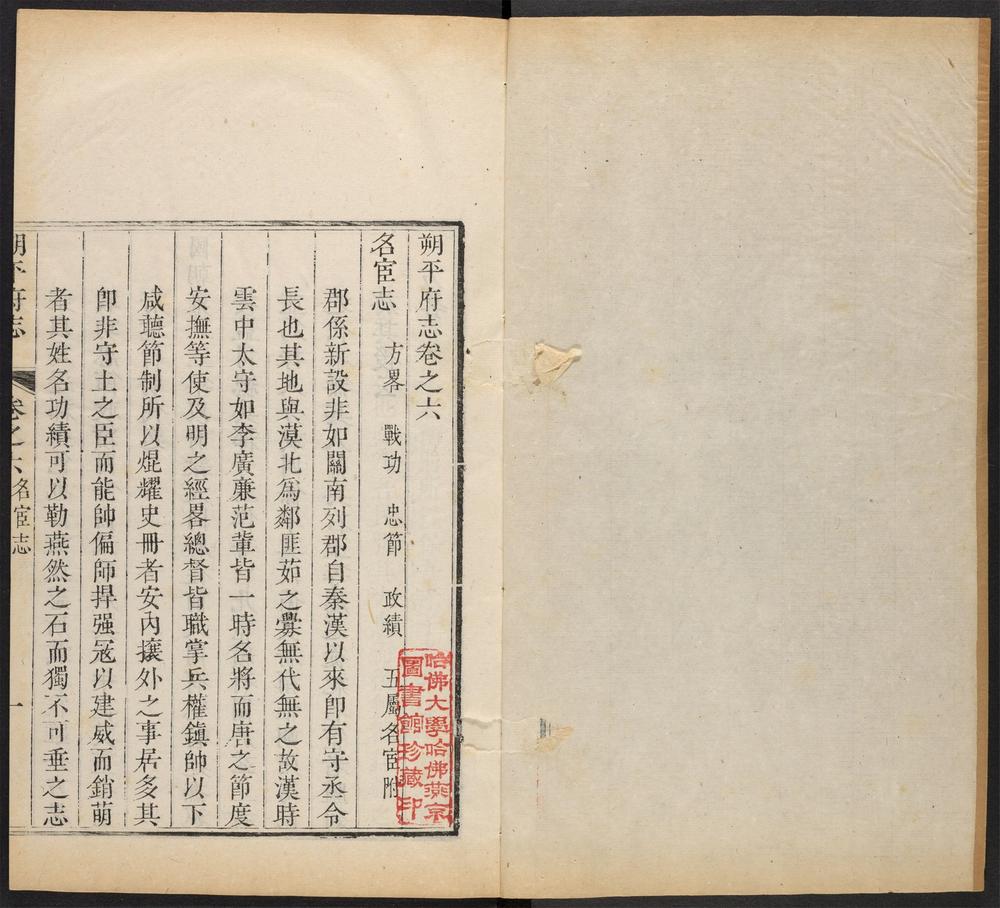 朔平府志卷之六
名宦志 方畧 戰功 忠節 政績 五屬名宦附
郡係新設非如關南列郡自秦漢以來卽有守丞令
長也其地與漠北爲鄰匪茹之釁無代無之故漢時
雲中太守如李廣廉范輩皆一時名將而唐之節度
安撫等使及明之經畧總督皆職掌兵權鎮帥以下
咸聽節制所以焜耀史冊者安內攘外之事居多其
卽非守土之臣而能帥偏師捍强寇以建威而銷萌
者其姓名功績可以勒燕然之石而獨不可垂之志
朔平府志 卷之六 名宦志 一
哈佛大學哈佛燕京
圖書館珍藏印